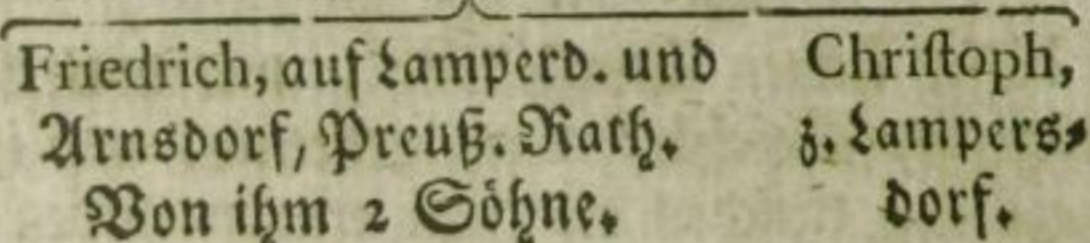 Friedrich, auf Lamperd. und
Arnsdorf, Preuß. Rath.
Von ihm 2 Söhne.
Chriſtoph,
z. Lampers⸗
dorf.